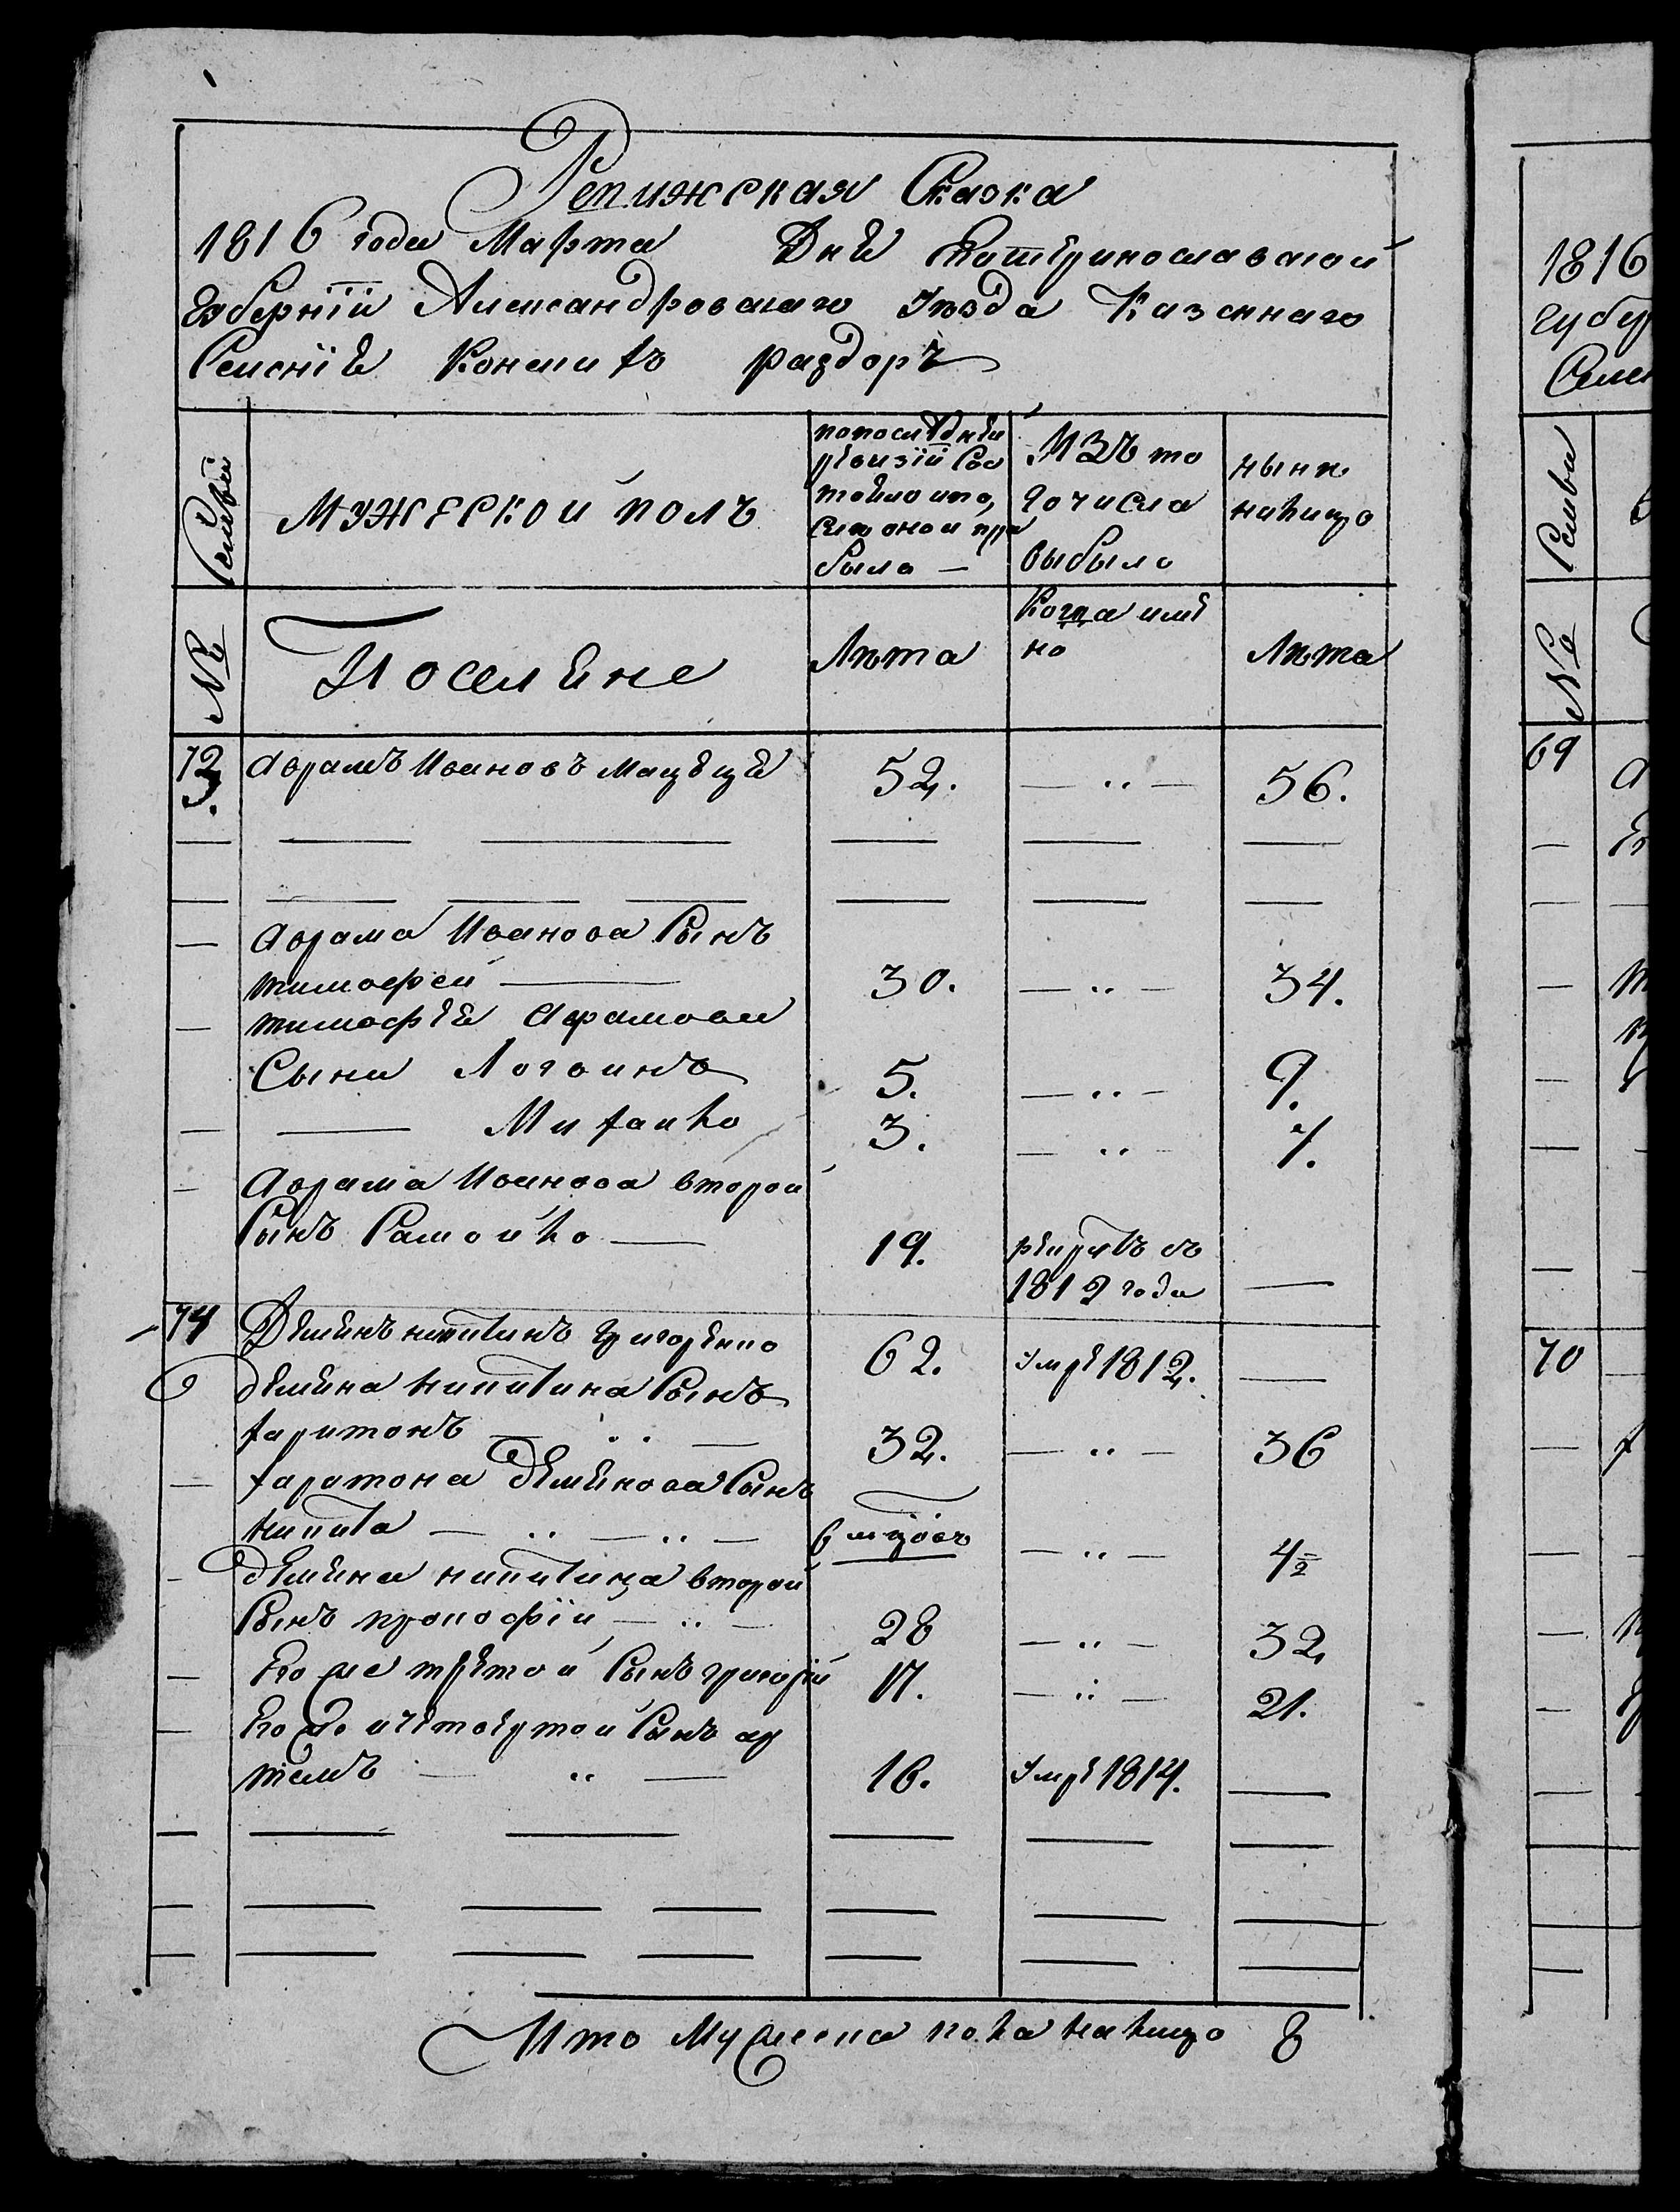 Ревижская Сказка
1816 года Марта Дня Екатеринославской
Губернїи Александровскаго Уѣзда Казеннаго
Селенїя Конскихъ раздоръ
Семьи
МУЖЕСКОЙ ПОЛЪ
попоследней
ревизїи Сос
тояло ипо,
сле оной при
было —
ИЗЪ то
го числа
выбыло
нынѣ
налицо
№
Поселяне
Лѣта
Когда имѣ
но
Лѣта
73. Аврамъ Ивановъ 52. — „ — 56.
Аврама Иванова Сынъ
тимофей — 30. — „ — 34.
тимофея Аврамова
Сыни Логвинъ 5. — „ — 9.
— Михайло 3. — „ — 7.
Аврама Иванова второй
Сынъ Самойло — 19. рекрутъ съ
1812 года —
74 Деменъ никитинъ григоренко 62. умре 1812. —
деменa никитина Сынъ
харитонъ — „ — 32. — „ — 36
харитона деменова Сынъ
никита — „ — „ — 6 — „ — 4½
демена никитина второй
Сынъ прокофїй — „ — 28 — „ — 32,
Его же третой Сынъ григорїй 17. — „ — 21.
Его же и четвертой Сынъ ар
темъ — „ — 16. умре 1814. —
Итого Мужеска пола налицо 8
1816
губер
Селен
Семьи
№
69
70